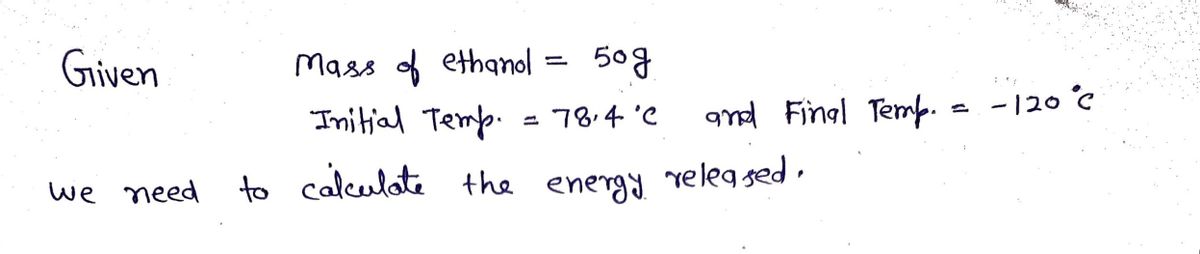 Given Mass of ethanol = 50g
Initial Temp. = 78.4 °C and Final Temp. = -120 °C
we need to calculate the energy released.